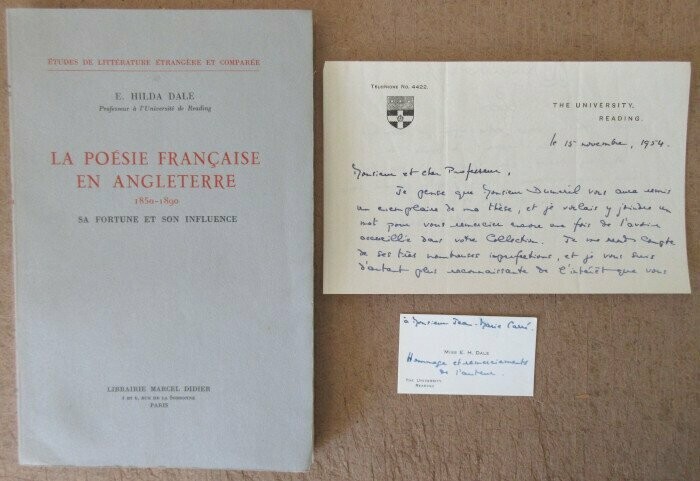 ÉTUDES DE LITTÉRATURE ÉTRANGÈRE ET COMPARÉE
E. HILDA DALE
Professeur à l'Université de Reading
LA POÉSIE FRANÇAISE
EN ANGLETERRE
1850-1890
SA FORTUNE ET SON INFLUENCE
LIBRAIRIE MARCEL DIDIER
4 et 6, RUE DE LA SORBONNE
PARIS
TELEPHONE No. 4422.
THE UNIVERSITY,
READING.
le 15 novembre, 1954.
Monsieur et cher Professeur,
Je pense que Monsieur Dumeril vous aura remis
un exemplaire de ma thèse, et je voulais y joindre un
mot pour vous remercier encore une fois de l'avoir
accueillie dans votre Collection. Je me rends compte
de ses très nombreuses imperfections, et je vous suis
d'autant plus reconnaissante de l'intérêt que vous
à Monsieur Jean-Marie Carré.
MISS E. H. DALE
Hommage et remerciements
de l'auteur.
THE UNIVERSITY
READING